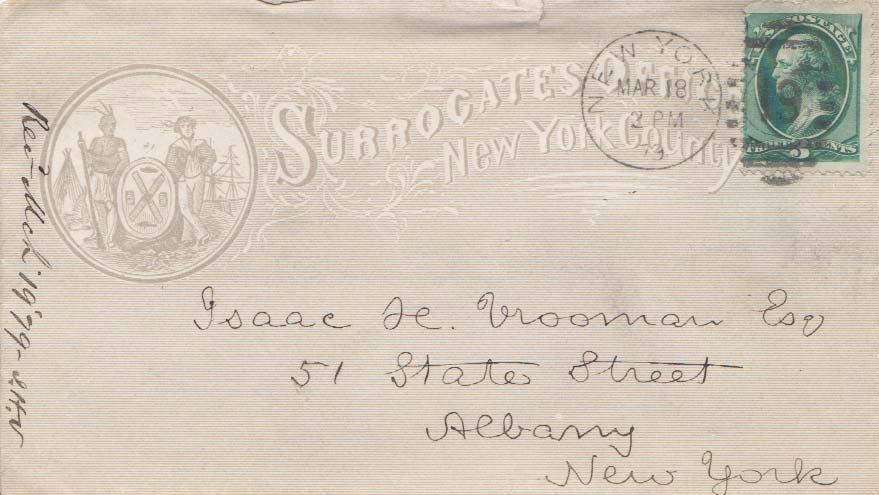 SURROGATES OFFICE
New York County
NEW YORK
MAR 18
2 PM
79
POSTAGE
THREE 3 CENTS
Isaac H. Vrooman Esq
51 State Street
Albany
New York
Rec Mch 19'79 - I.H.V